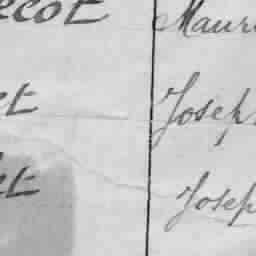 ecot Mauri
et Joseph
et Joseph